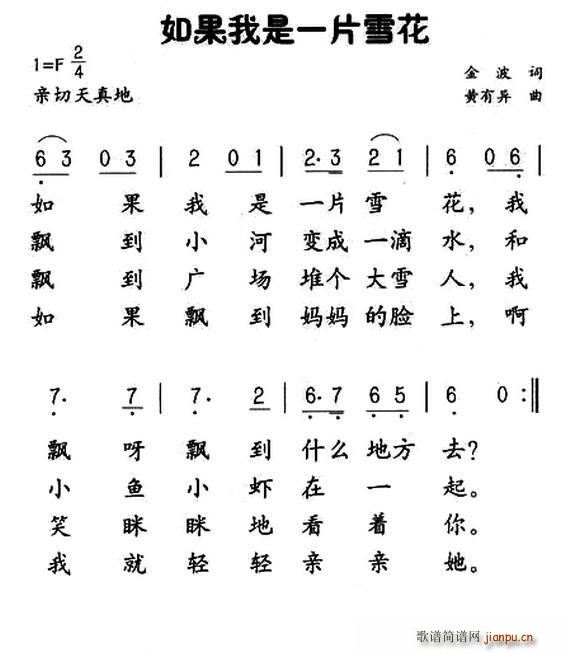 如果我是一片雪花
1=F 2/4
金波 词
亲切天真地
黄有异 曲
6 3 0 3 | 2 0 1 | 2·3 2 1 | 6 0 6 |
如果我是一片雪花，我
飘到小河变成一滴水，和
飘到广场堆个大雪人，我
如果飘到妈妈的脸上，啊
7· 7 | 7· 2 | 6·7 6 5 | 6 0 :‖
飘呀飘到什么地方去？
小鱼小虾在一起。
笑眯眯地看着你。
我就轻轻亲亲她。
歌谱简谱网
jianpu.cn